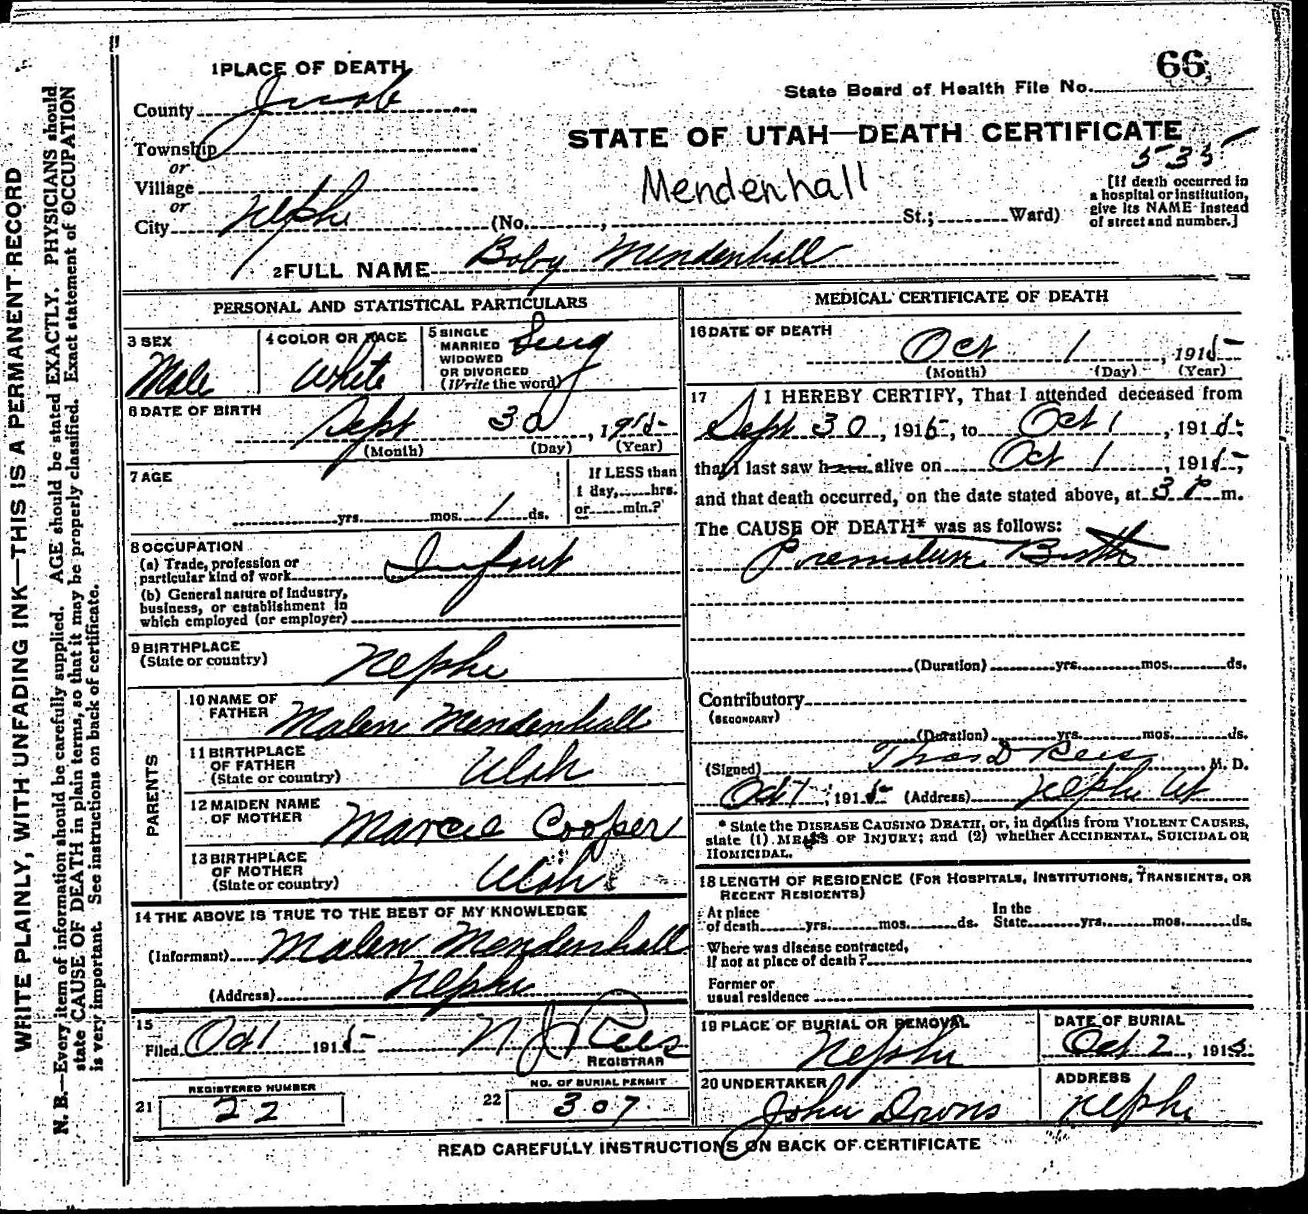 WRITE PLAINLY, WITH UNFADING INK—THIS IS A PERMANENT RECORD
N. B.—Every item of information should be carefully supplied. AGE should be stated EXACTLY. PHYSICIANS should
state CAUSE OF DEATH in plain terms, so that it may be properly classified. Exact statement of OCCUPATION
is very important. See instructions on back of certificate.
1 PLACE OF DEATH
66
County Juab
State Board of Health File No.
STATE OF UTAH—DEATH CERTIFICATE
535
Township
or
Village
or
City Nephi
Mendenhall
(No. , St.; Ward)
[If death occurred in
a hospital or institution,
give its NAME instead
of street and number.]
2 FULL NAME Boby Mendenhall
PERSONAL AND STATISTICAL PARTICULARS
3 SEX
Male
4 COLOR OR RACE
White
5 SINGLE
MARRIED
WIDOWED
OR DIVORCED
(Write the word)
Sing
6 DATE OF BIRTH
Sept 30, 1915
(Month) (Day) (Year)
7 AGE
yrs. mos. 1 ds.
If LESS than
1 day, hrs.
or min.?
8 OCCUPATION
(a) Trade, profession or
particular kind of work Infant
(b) General nature of industry,
business, or establishment in
which employed (or employer)
9 BIRTHPLACE
(State or country) Nephi
PARENTS
10 NAME OF
FATHER Malen Mendenhall
11 BIRTHPLACE
OF FATHER
(State or country) Utah
12 MAIDEN NAME
OF MOTHER Marcie Cooper
13 BIRTHPLACE
OF MOTHER
(State or country) Utah
14 THE ABOVE IS TRUE TO THE BEST OF MY KNOWLEDGE
(Informant) Malen Mendenhall
(Address) Nephi
15
Filed Oct 1 1915 N J Rees
REGISTRAR
21 REGISTERED NUMBER
22
22 NO. OF BURIAL PERMIT
307
MEDICAL CERTIFICATE OF DEATH
16 DATE OF DEATH
Oct 1, 1915
(Month) (Day) (Year)
17 I HEREBY CERTIFY, That I attended deceased from
Sept 30, 1915, to Oct 1, 1915,
that I last saw h alive on Oct 1, 1915,
and that death occurred, on the date stated above, at 3 P m.
The CAUSE OF DEATH* was as follows:
Premature Birth
(Duration) yrs. mos. ds.
Contributory
(SECONDARY)
(Duration) yrs. mos. ds.
(Signed) Thos D Rees, M. D.
Oct 1, 1915 (Address) Nephi Ut
* State the DISEASE CAUSING DEATH, or, in deaths from VIOLENT CAUSES,
state (1) MEANS OF INJURY; and (2) whether ACCIDENTAL, SUICIDAL OR
HOMICIDAL.
18 LENGTH OF RESIDENCE (FOR HOSPITALS, INSTITUTIONS, TRANSIENTS, OR
RECENT RESIDENTS)
At place
of death yrs. mos. ds.
In the
State yrs. mos. ds.
Where was disease contracted,
if not at place of death?
Former or
usual residence
19 PLACE OF BURIAL OR REMOVAL
Nephi
DATE OF BURIAL
Oct 2, 1915
20 UNDERTAKER
John Downs
ADDRESS
Nephi
READ CAREFULLY INSTRUCTIONS ON BACK OF CERTIFICATE